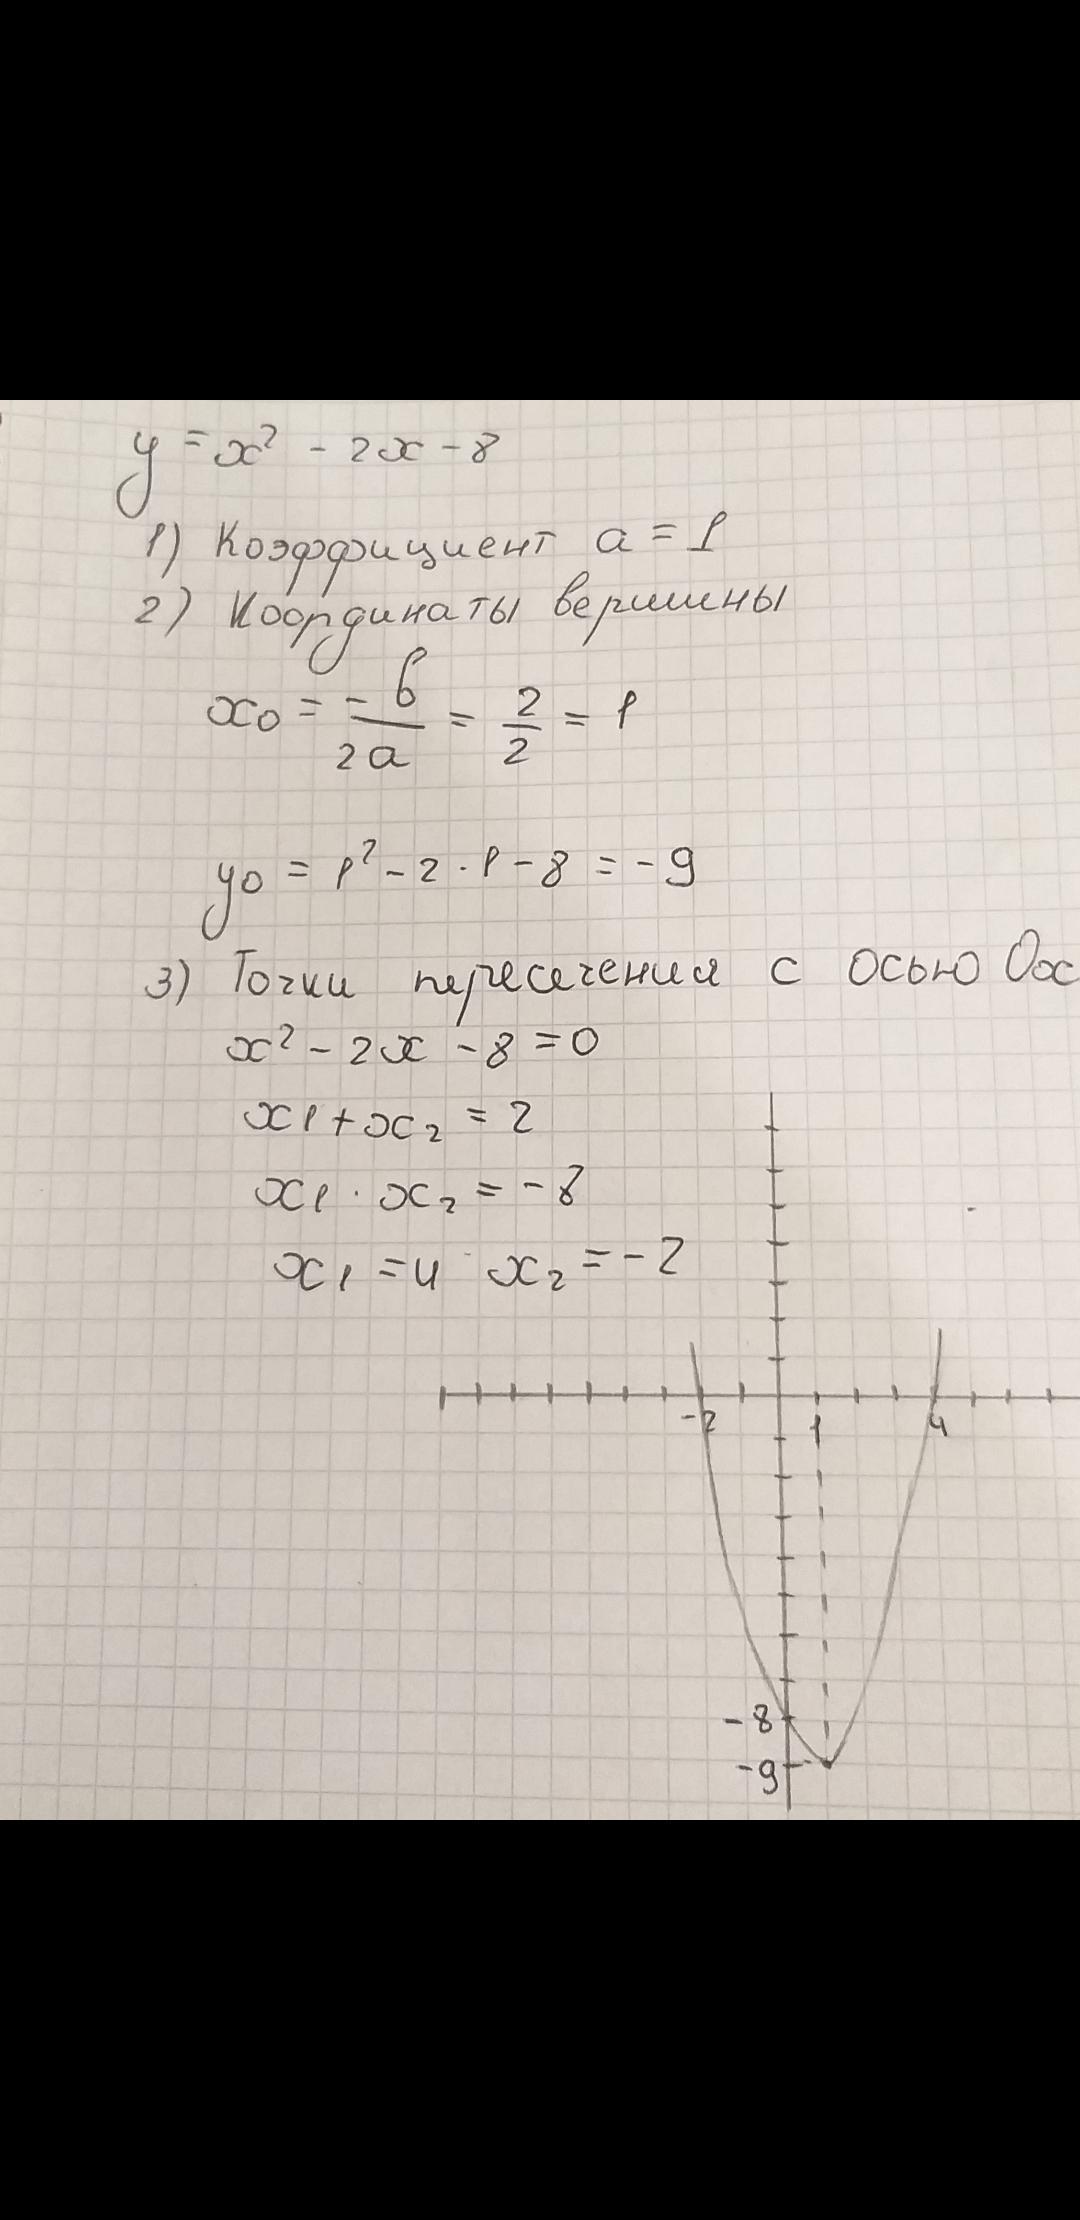 y = x² - 2x - 8
1) Коэффициент a = 1
2) Координаты вершины
x₀ = -b/2a = 2/2 = 1
y₀ = 1² - 2 · 1 - 8 = -9
3) Точки пересечения с осью Ox
x² - 2x - 8 = 0
x₁ + x₂ = 2
x₁ · x₂ = -8
x₁ = 4 x₂ = -2
-2 1 4
-8
-9